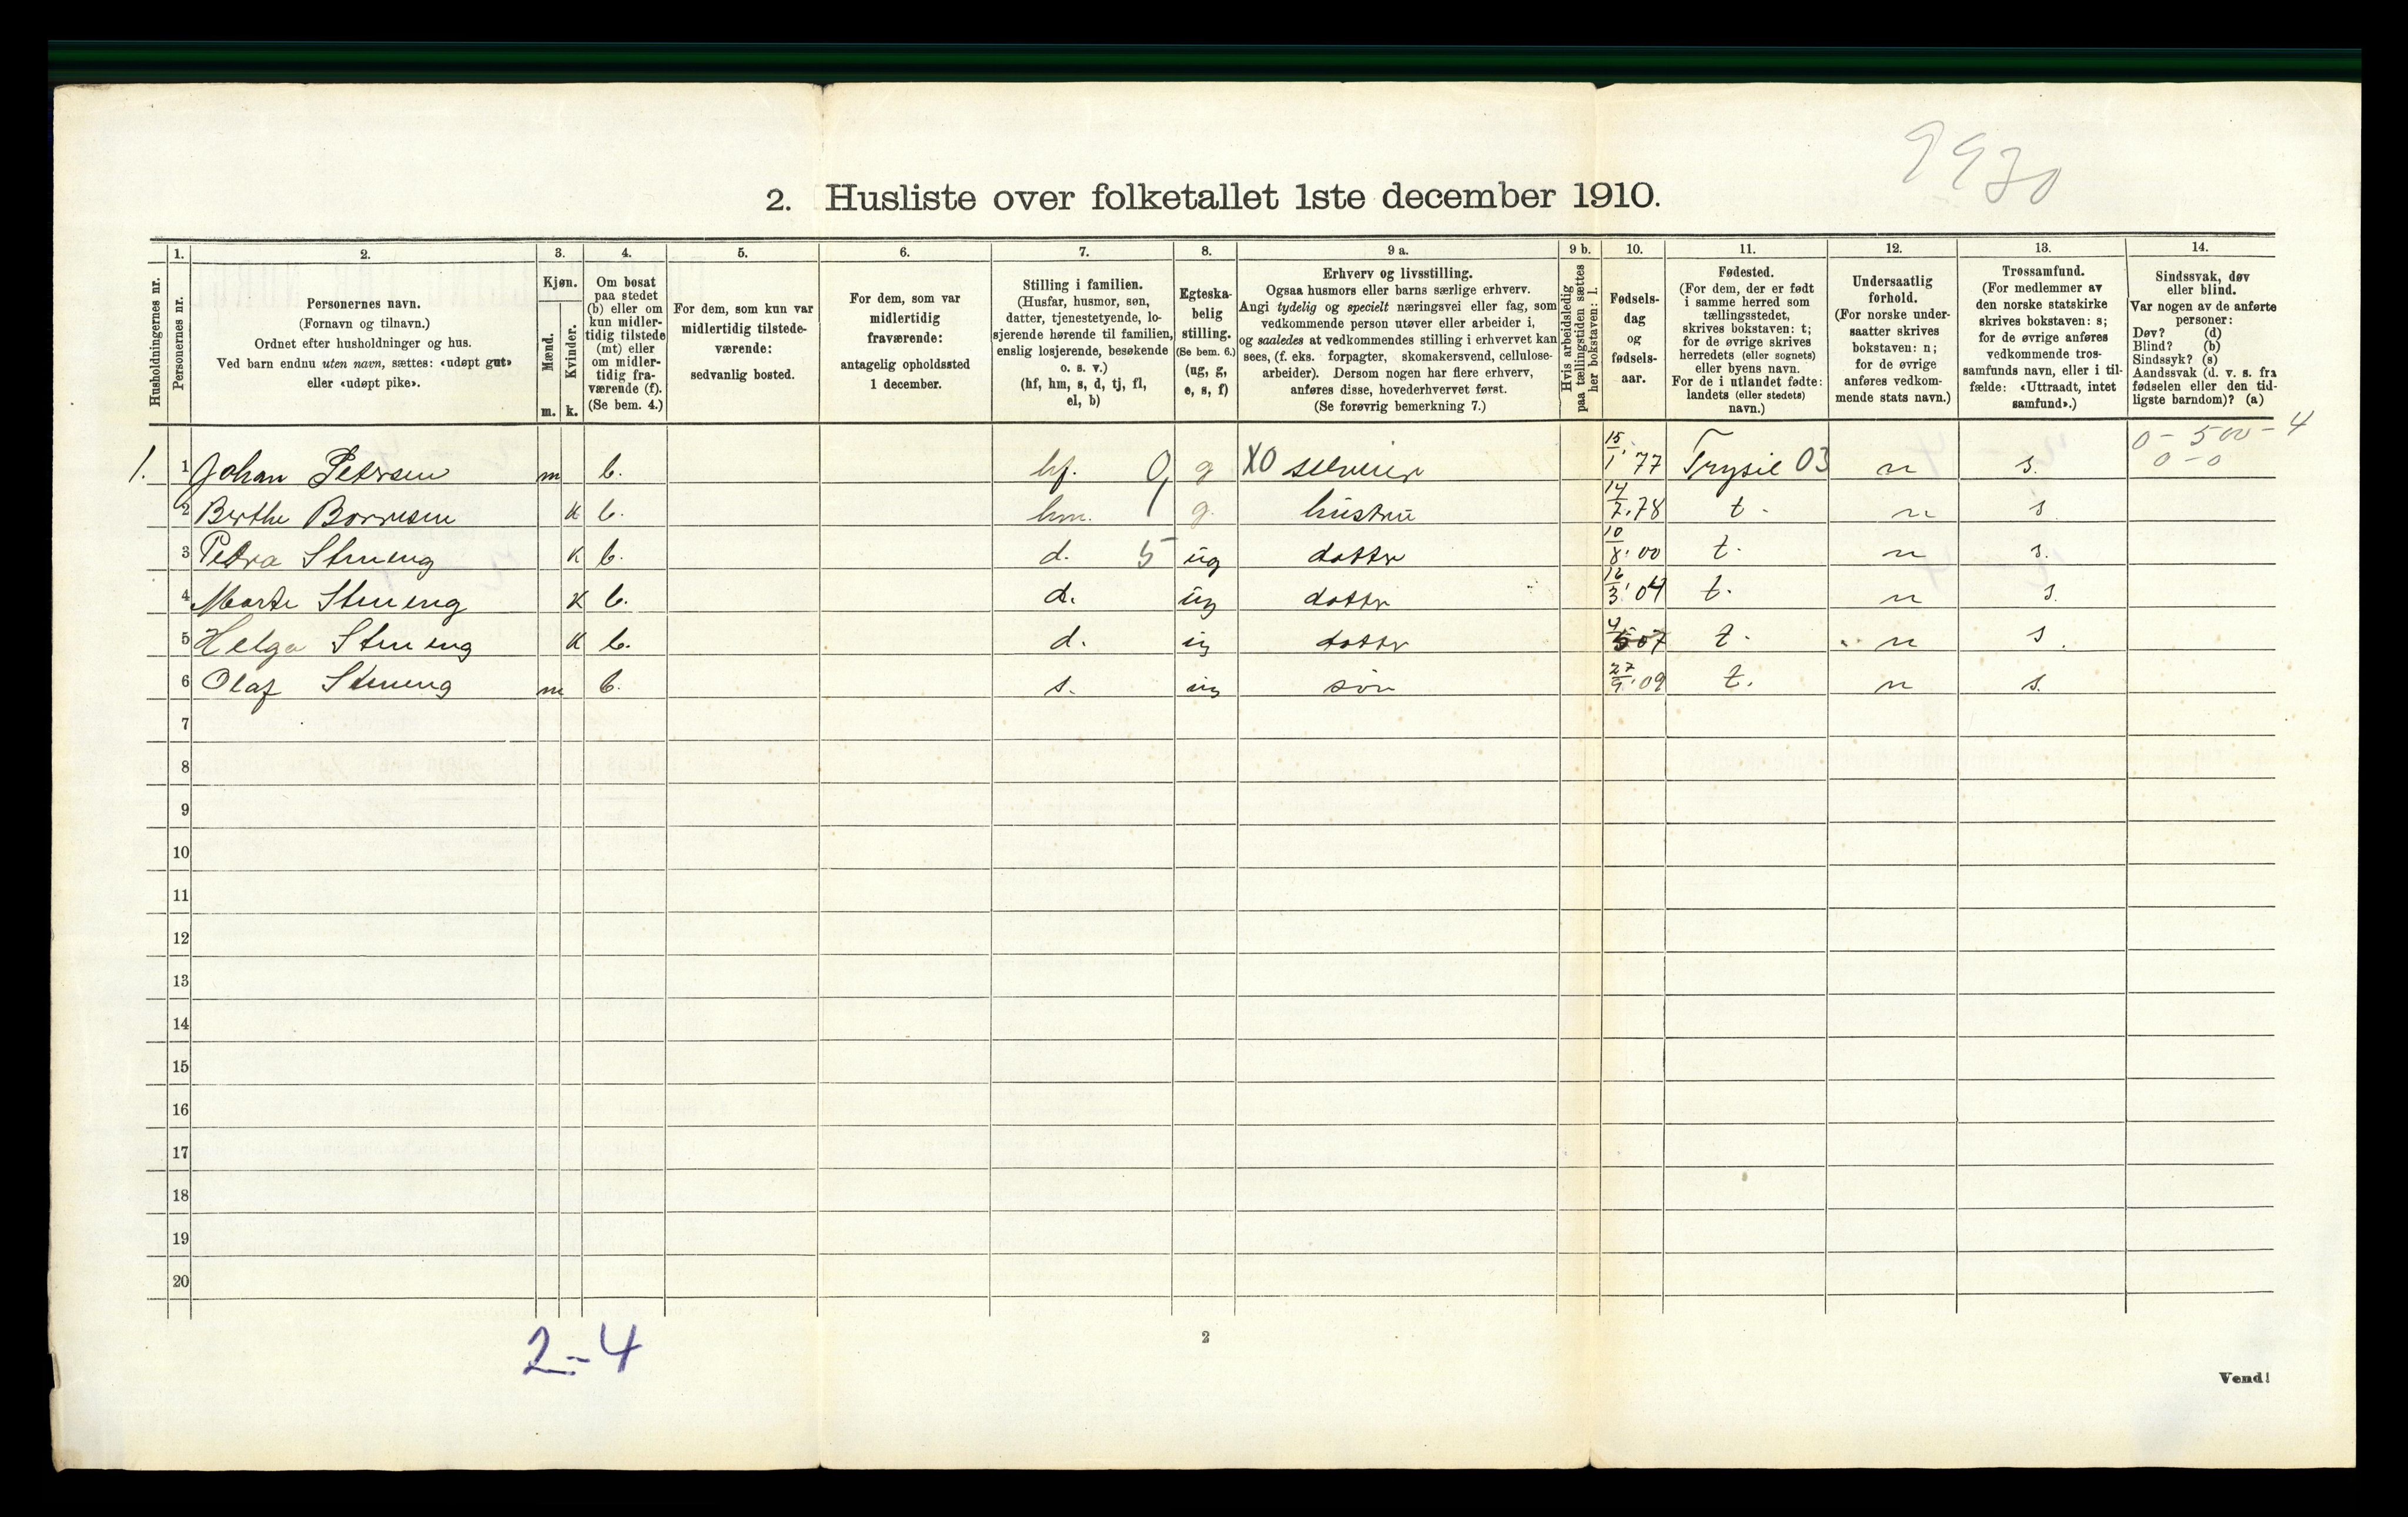 9930
2. Husliste over folketallet 1ste december 1910.
Husholdningernes nr.
1. Personernes nr.
2. Personernes navn.
(Fornavn og tilnavn.)
Ordnet efter husholdninger og hus.
Ved barn endnu uten navn, sættes: «udøpt gut»
eller «udøpt pike».
3. Kjøn.
Mænd. m.
Kvinder. k.
4. Om bosat
paa stedet
(b) eller om
kun midler-
tidig tilstede
(mt) eller
om midler-
tidig fra-
værende (f).
(Se bem. 4.)
5. For dem, som kun var
midlertidig tilstede-
værende:
sedvanlig bosted.
6. For dem, som var
midlertidig
fraværende:
antagelig opholdssted
1 december.
7. Stilling i familien.
(Husfar, husmor, søn,
datter, tjenestetyende, lo-
sjerende hørende til familien,
enslig losjerende, besøkende
o. s. v.)
(hf, hm, s, d, tj, fl,
el, b)
8. Egteska-
belig
stilling.
(Se bem. 6.)
(ug, g,
e, s, f)
9 a. Erhverv og livsstilling.
Ogsaa husmors eller barns særlige erhverv.
Angi tydelig og specielt næringsvei eller fag, som
vedkommende person utøver eller arbeider i,
og saaledes at vedkommendes stilling i erhvervet kan
sees, (f. eks. forpagter, skomakersvend, cellulose-
arbeider). Dersom nogen har flere erhverv,
anføres disse, hovederhvervet først.
(Se forøvrig bemerkning 7.)
9 b. Hvis arbeidsledig
paa tællingstiden sættes
her bokstaven: l.
10. Fødsels-
dag
og
fødsels-
aar.
11. Fødested.
(For dem, der er født
i samme herred som
tællingsstedet,
skrives bokstaven: t;
for de øvrige skrives
herredets (eller sognets)
eller byens navn.
For de i utlandet fødte:
landets (eller stedets)
navn.)
12. Undersaatlig
forhold.
(For norske under-
saatter skrives
bokstaven: n;
for de øvrige
anføres vedkom-
mende stats navn.)
13. Trossamfund.
(For medlemmer av
den norske statskirke
skrives bokstaven: s;
for de øvrige anføres
vedkommende tros-
samfunds navn, eller i til-
fælde: «Uttraadt, intet
samfund».)
14. Sindssvak, døv
eller blind.
Var nogen av de anførte
personer:
Døv? (d)
Blind? (b)
Sindssyk? (s)
Aandssvak (d. v. s. fra
fødselen eller den tid-
ligste barndom)? (a)
0 - 500 - 4
0 - 0
1. 1 Johan Petersen m b. hf. g XO selveier 15/1 77 Trysil 03 n s.
2 Berthe Børresen k b. hm. g. hustru 14/7. 78 t. n s
3 Petra Steneng k b. d. 5 ug datter 10/8. 00 t. n s.
4 Marte Steneng k b. d. ug datter 16/3. 04 t. n s.
5 Helga Steneng k b. d. ug datter 4/5 07 t. n s.
6 Olaf Steneng m b. s. ug søn 27/9. 09 t. n s.
7
8
9
10
11
12
13
14
15
16
17
18
19
20
2-4
2
Vend!